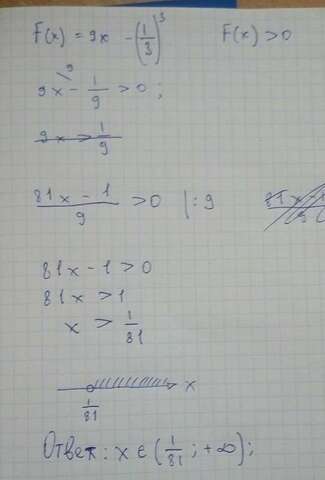 F(x) = 9x - (1/3)^3 F(x) > 0
9x - 1/9 > 0 ;
9x > 1/9
(81x - 1)/9 > 0 | : 9
81x - 1 > 0
81x > 1
x > 1/81
x
1/81
Ответ: x ∈ (1/81 ; +∞);